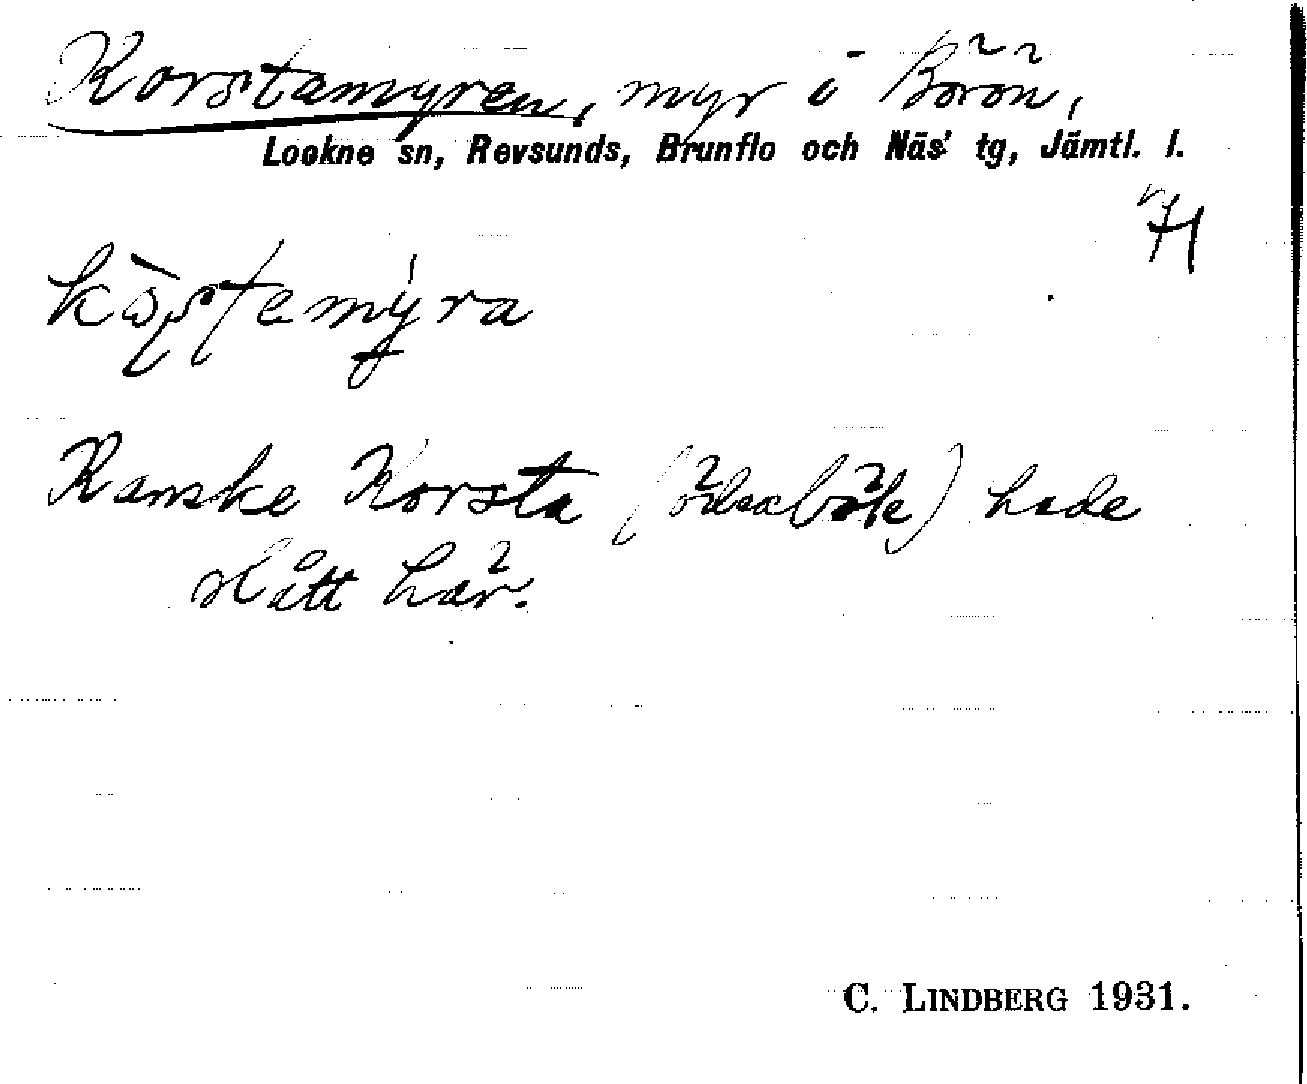 Korstamyren, myr i Börön,
Lockne sn, Revsunds, Brunflo och Näs' tg, Jämtl. l.
Kanske Korsta (ödesböle) hade
slått här.
C. LINDBERG 1931.